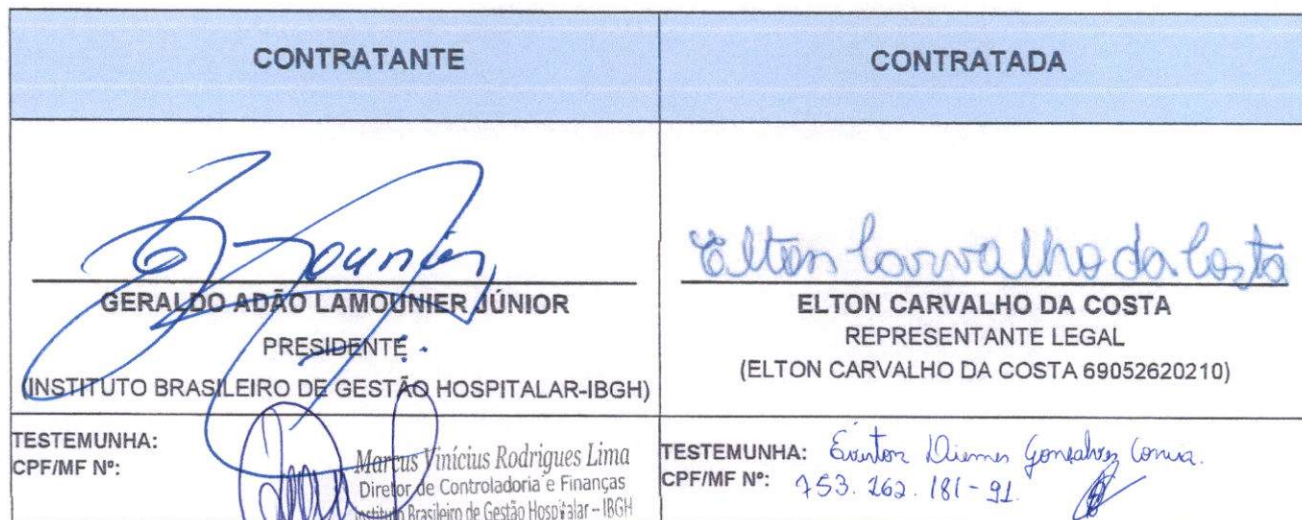 CONTRATANTE
CONTRATADA
GERALDO ADÃO LAMOUNIER JÚNIOR
PRESIDENTE
(INSTITUTO BRASILEIRO DE GESTÃO HOSPITALAR-IBGH)
Elton Carvalho da Costa
ELTON CARVALHO DA COSTA
REPRESENTANTE LEGAL
(ELTON CARVALHO DA COSTA 69052620210)
TESTEMUNHA:
CPF/MF Nº:
Marcus Vinícius Rodrigues Lima
Diretor de Controladoria e Finanças
Instituto Brasileiro de Gestão Hospitalar – IBGH
TESTEMUNHA: Gonçalves
CPF/MF Nº: 753.262.181-91